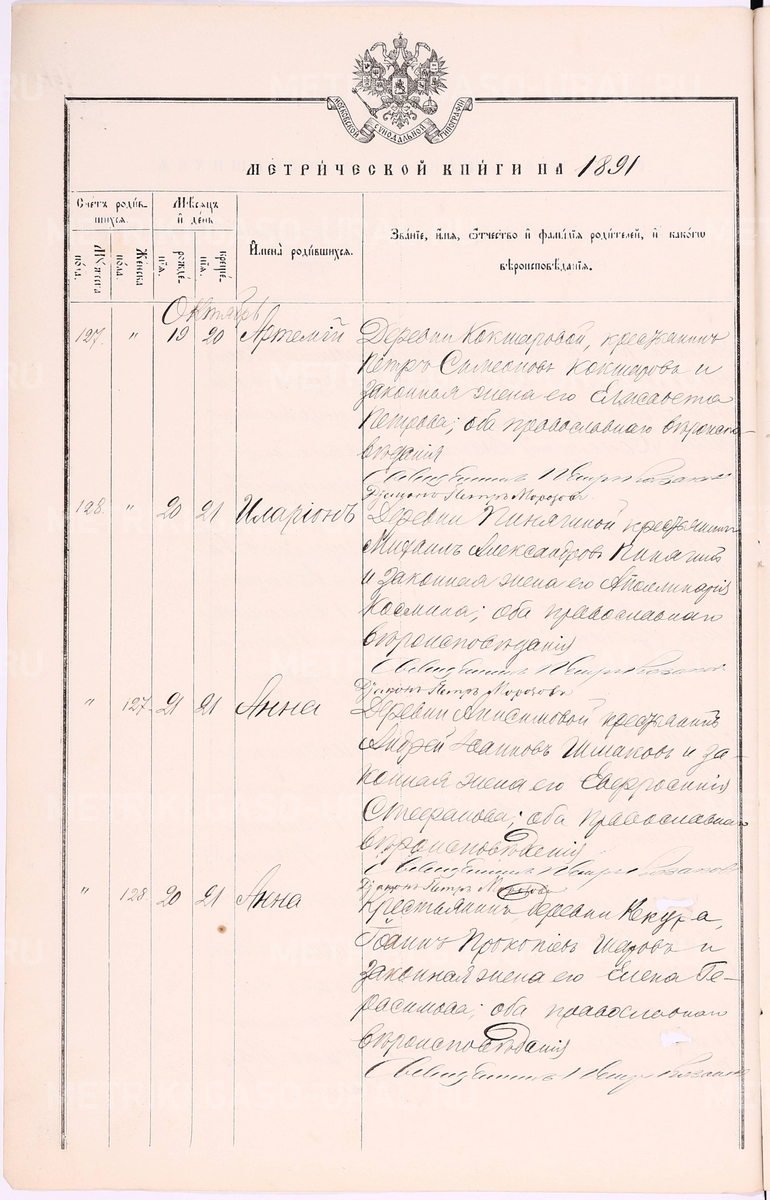 МОСКОВСКОЙ СѴНОДАЛЬНОЙ ТИПОГРАФІИ
МЕТРИ́ЧЕСКОЙ КНИ́ГИ НА 1891
Счетъ роди́в-
шихся.
Мѣсяцъ
и день
Имена роди́вшихся.
Зва́ніе, и́мя, о́тчество и фами́лія роди́телей, и како́гѡ
вѣроисповѣ́данія.
Му́жеска
по́ла.
Же́нска
по́ла.
рожде́-
нія.
креще́-
нія.
Октябрь
127. " 19 20 Артемій Деревни Кокшаровой, крестьянинъ
Петръ Симеоновъ Кокшаровъ и
законная жена его Елисавета
Петрова; оба православнаго вѣроиспо-
вѣданія
Священникъ Петръ
Діаконъ Петръ Морозовъ
128. " 20 21 Иларіонъ Деревни Пинягиной крестьянинъ
Михаилъ Александровъ Пинягинъ
и законная жена его Аполлинарія
Космина; оба православнаго
вѣроисповѣданія
Священникъ Петръ
Діаконъ Петръ Морозовъ
" 127. 21 21 Анна Деревни Анисимовой крестьянинъ
Андрей Іоанновъ Шмаковъ и за-
конная жена его Евфросинія
Стефанова; оба православнаго
вѣроисповѣданія
Священникъ Петръ
Діаконъ Петръ Морозовъ
" 128 20 21 Анна Крестьянинъ деревни Кекура,
Іоаннъ Прокопіевъ Шаровъ и
законная жена его Елена Ге-
расимова; оба православнаго
вѣроисповѣданія
Священникъ Петръ